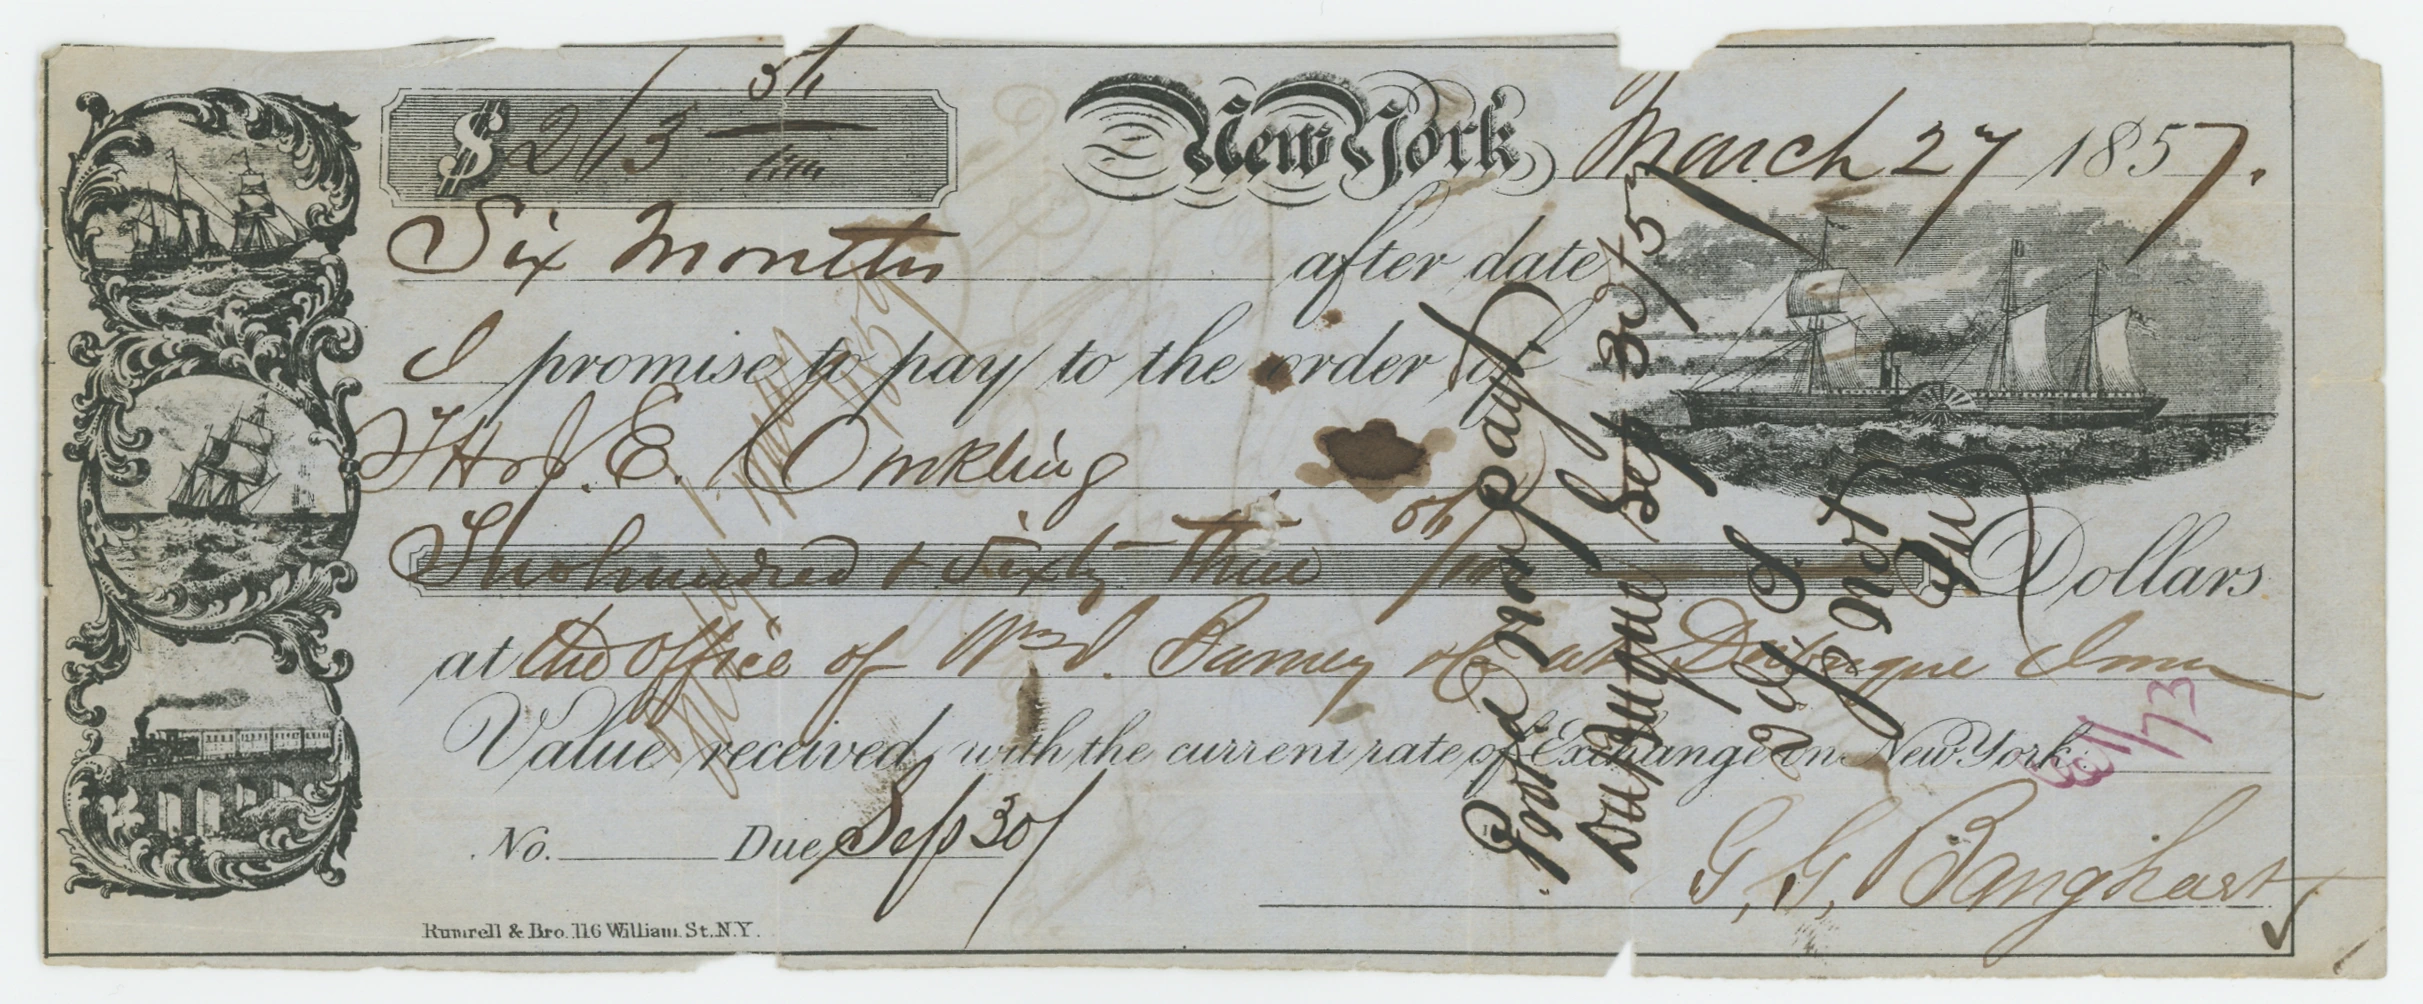 $ 263 
New York March 27 1857.
Six Months after date
I promise to pay to the order of
E. Conkling
Two hundred & Sixty three Dollars
at the Office of Wm J. Barney & Co at Dubuque Iowa
Value received, with the current rate of Exchange on New York.
No. Due Sep 30/
G, G, Banghart
Rumrell & Bro. 116 William. St. N.Y.
Protd non payt
Dubuque Sep 30/57
Not